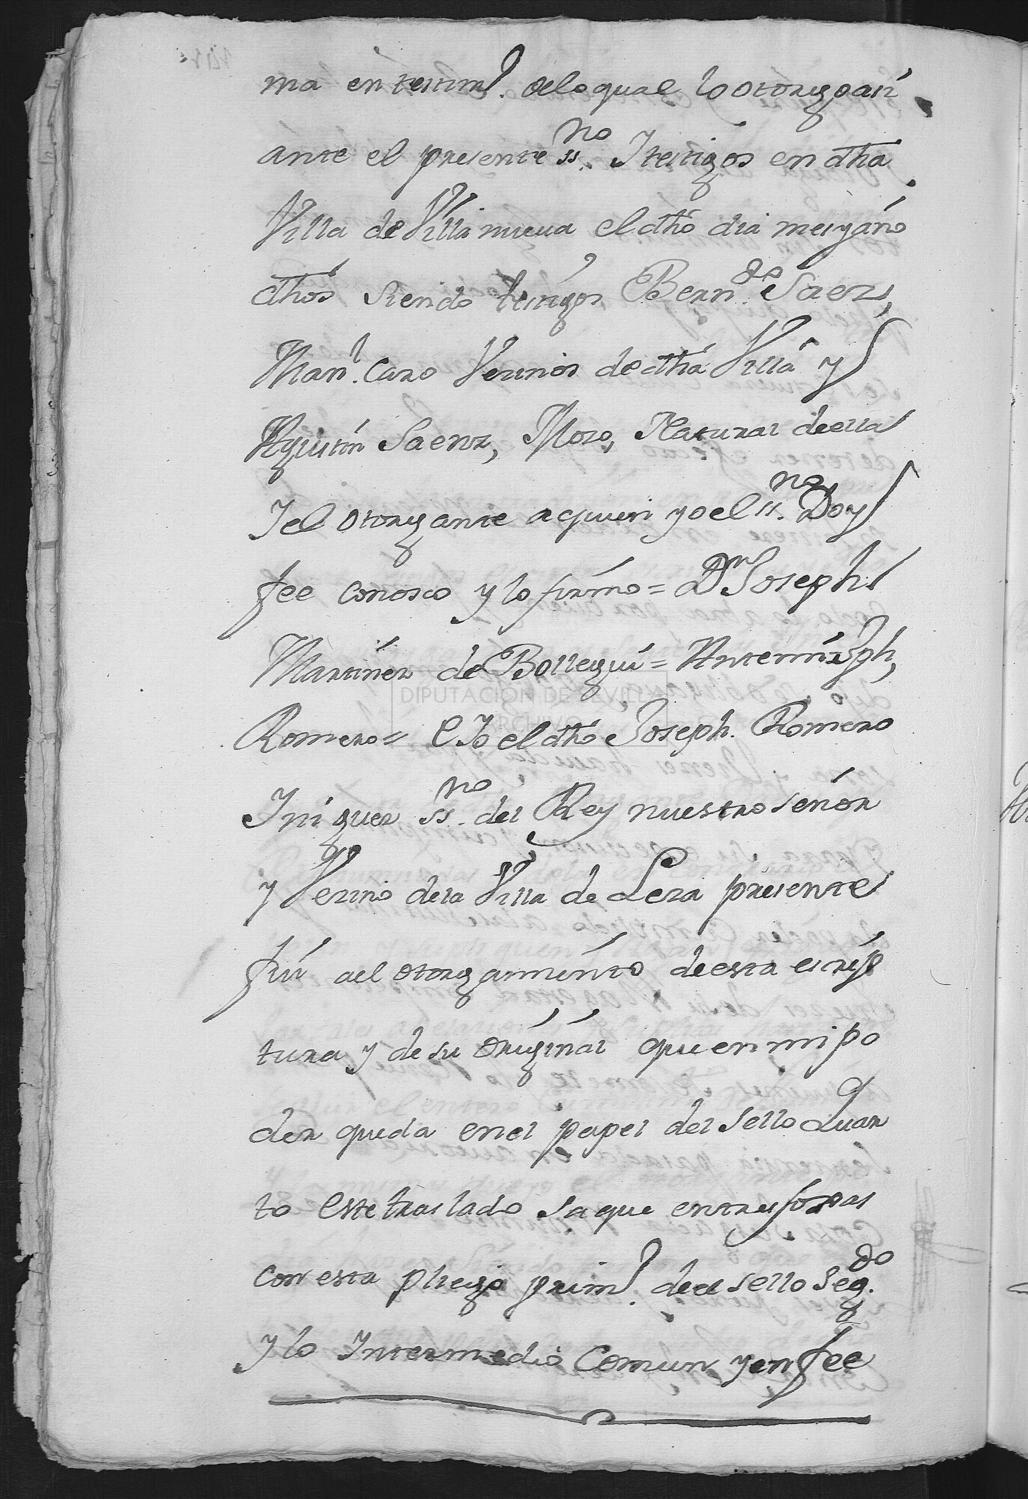 ma en testim.º delo qual lo otorgo asi
ante el presente ss.no Y testigos en dha
Villa de Villanueua el dho dia mes y año
dhos siendo testigos Bern.do Saenz,
Man.l Caro Vezinos de dha Villa y
Agustin Saenz, Mozo, Natural de ella
Y el otorgante a quien yo el ss.no Doy
fee conosco y lo firmo = Dn Joseph
Martinez de Bollegui = Ante mi Jph,
Romero = E Yo el dho Joseph. Romero
Iniguez ss.no del Rey nuestro señor
y Vezino dela Villa de Leza presente
fui ael otorgamiento de esta escrip
tura y de su original que en mi po
der queda en el papel del Sello Quar
to este traslado saque en tres foxas
con esta pliego prim.º de el sello Seg.do
y lo Intermedio Comun y en fee
DIPUTACIÓN DE SEVILLA
ARCHIVO